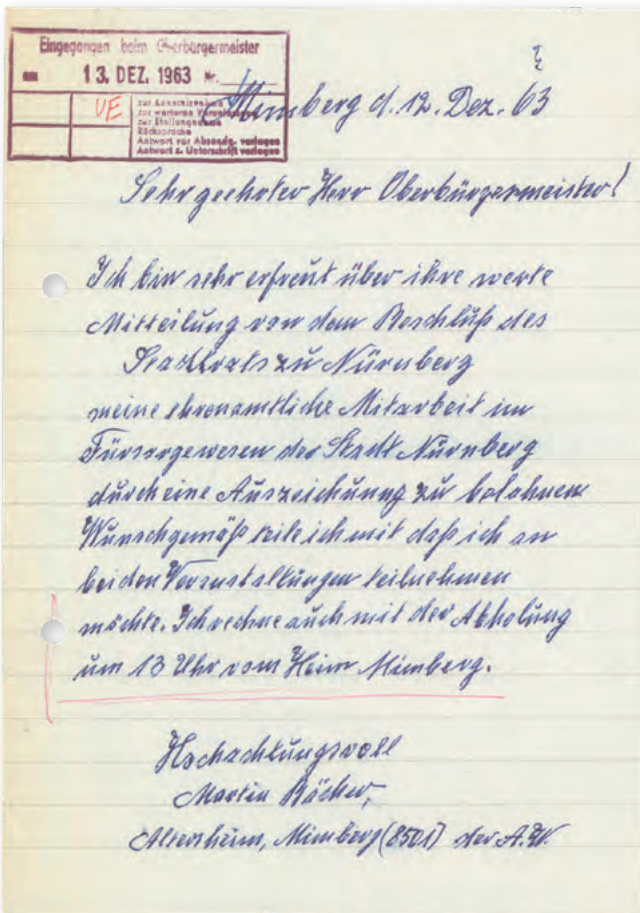 Eingegangen beim Oberbürgermeister
am 13. DEZ. 1963 Nr.
UE
zur Kenntnisnahme
zur weiteren
zur Stellungnahme
Rücksprache
Antwort vor Absendg. vorlegen
Antwort z. Unterschrift vorlegen
Mimberg d. 12. Dez. 63
Sehr geehrter Herr Oberbürgermeister!
Ich bin sehr erfreut über ihre werte
Mitteilung von dem Beschluß des
Stadtrats zu Nürnberg
meine ehrenamtliche Mitarbeit im
Fürsorgewesen der Stadt Nürnberg
durch eine Auszeichnung zu belohnen
Wunschgemäß teile ich mit daß ich an
beiden Veranstaltungen teilnehmen
möchte. Ich rechne auch mit der Abholung
um 13 Uhr vom Heim Mimberg.
Hochachtungsvoll
Martin Bächer,
Altersheim, Mimberg (8501) der A.W.